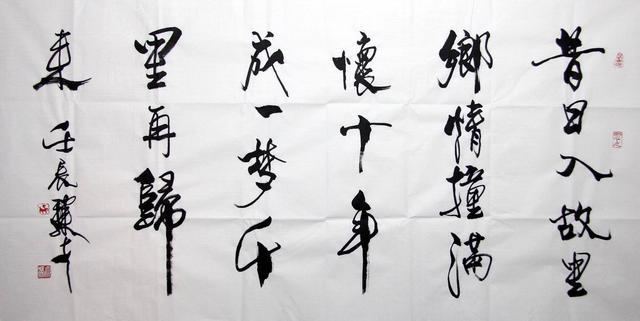 昔日入故里
鄉情撞滿
懷十年
成一梦千
里再歸
来 壬辰驥才